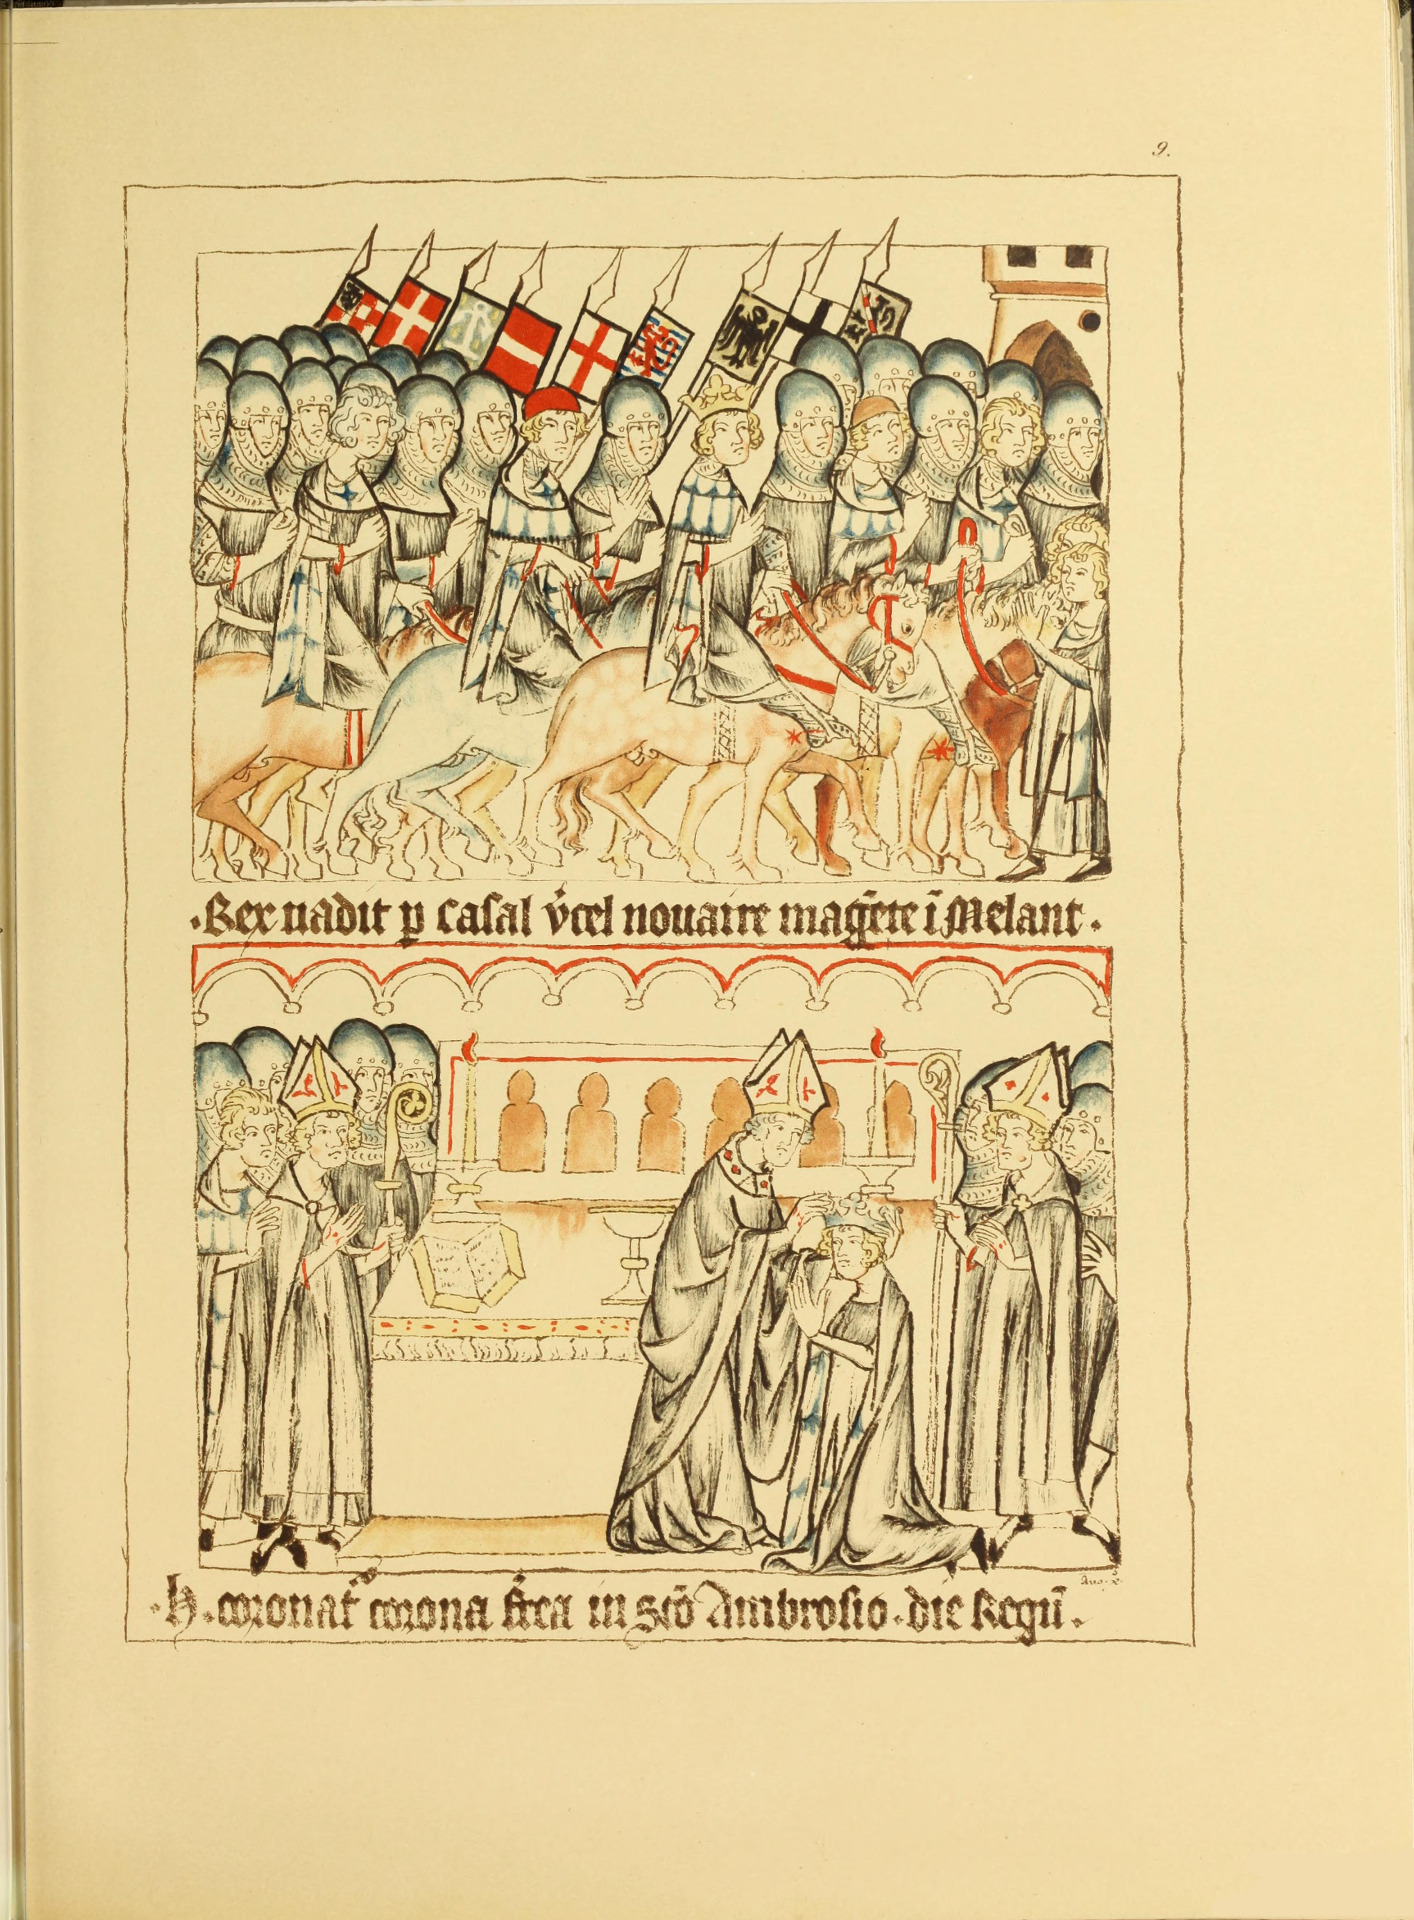 9.
·Rex uadit p̱ casal v̊cel nouaire mag̅ete i̅ Melant·
·H·coronat᷑ corona fr̃ea in sc̅o Ambrosio·die Regu̅·